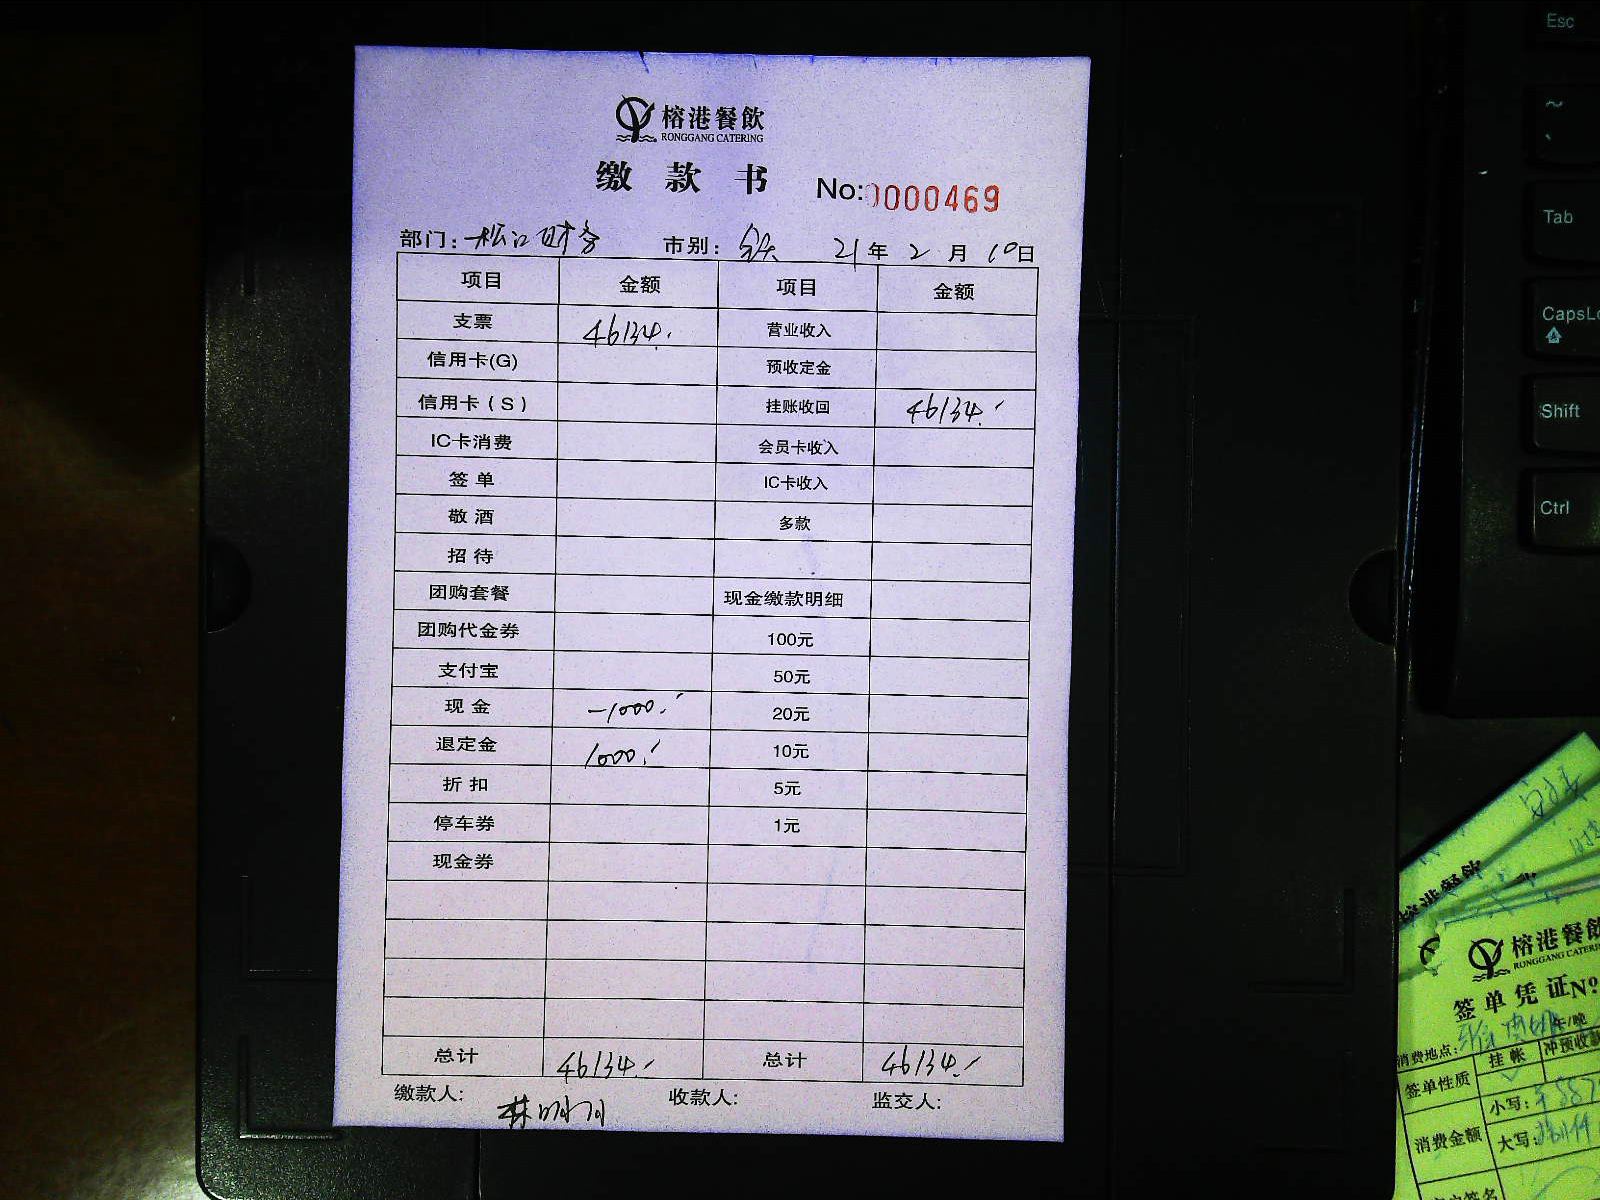 榕港餐飲
RONGGANG CATERING
缴款书 No:0000469
部门: 松江财务 市别: 21年2月10日
项目 金额 项目 金额
支票 46134. 营业收入
信用卡(G) 预收定金
信用卡(S) 挂账收回 46134.
IC卡消费 会员卡收入
签单 IC卡收入
敬酒 多款
招待
团购套餐 现金缴款明细
团购代金券 100元
支付宝 50元
现金 -1000. 20元
退定金 1000. 10元
折扣 5元
停车券 1元
现金券
总计 46134. 总计 46134.
缴款人: 收款人: 监交人:
Esc
~
Tab
CapsLo
Shift
Ctrl
榕港餐飲
榕港餐飲
RONGGANG CATERI
签单凭证No
消费地点: 午/晚
签单性质 挂帐 冲预收款
消费金额 小写:
大写: